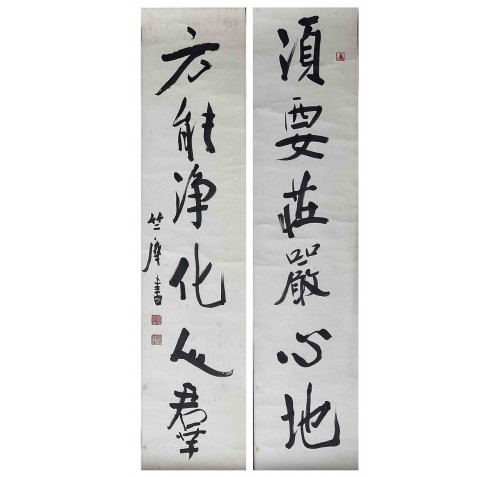 須要莊嚴心地
方能淨化人羣
竺摩書